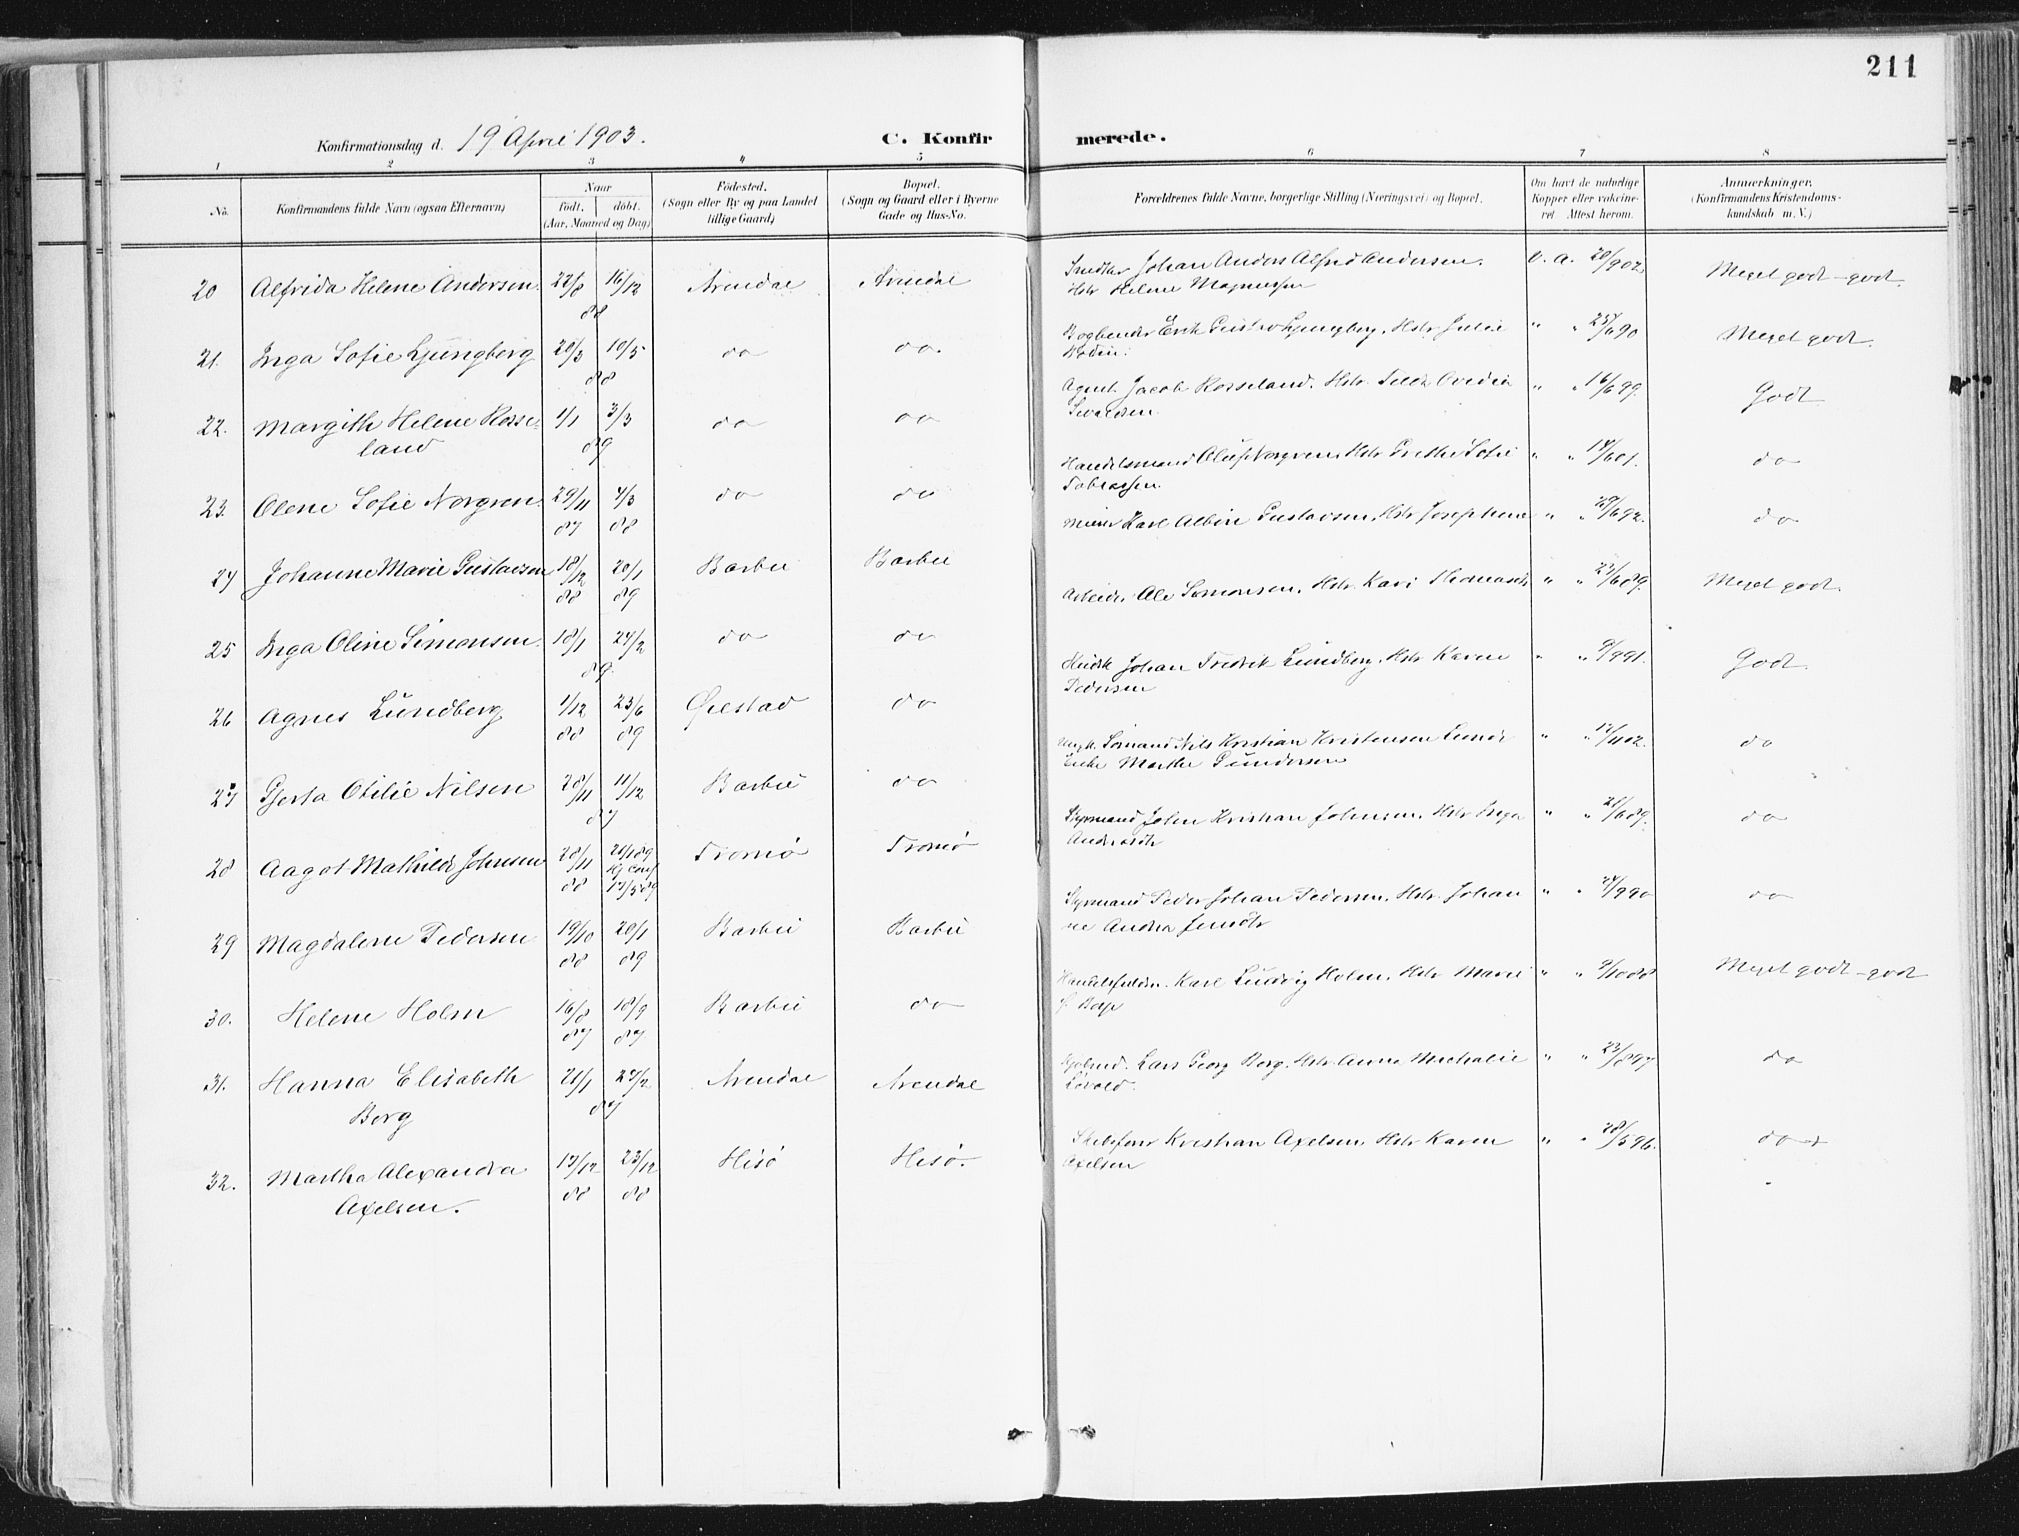 211
Konfirmationsdag d. 19 April 1903. C. Konfirmerede.
1 2 3 4 5 6 7 8
No. Konfirmandens fulde Navn (ogsaa Efternavn) Naar født, døbt. (Aar, Maaned og Dag) Fødested. (Sogn eller By og paa Landet tillige Gaard) Bopæl. (Sogn og Gaard eller i Byerne Gade og Hus-No. Forældrenes fulde Navne, borgerlige Stilling (Næringsvei) og Bopæl. Om havt de naturlige Kopper eller vakcineret Attest herom. Anmærkninger. (Konfirmandens Kristendomskundskab m. V.)
20 Alfrida Helene Andersen 22/8 16/12 88 Arendal Arendal Johan Anders Alfred Andersen. Hstr Helene Magnussen v. a. 20/902 Meget godt - godt.
21. Inga Sofie Ljungberg 20/3 10/5 88 do do. Erik Gustav Ljungberg, Hstr Julie " " 25/690 Meget godt.
22. Margith Helene Rosseland 1/1 3/3 89 do do Agent Jacob Rosseland. Hstr Ovedia " " 16/699. Godt
23. Olene Sofie Norgren 29/11 4/3 87 88 do do Handelsmand Oluf Norgren, Hstr Grethe Sofie Tobiassen " " 14/601. do
24 Johanne Marie Gustavsen 18/12 20/1 88 89 Barbu Barbu Murer Karl Albin Gustavsen, Hstr Josephine " " 29/692. do
25 Inga Oline Simonsen 18/1 24/2 89. do do Arbeider Ole Simonsen, Hstr Kari " " 25/689. Meget godt.
26 Agnes Lundberg 1/12 23/6 88 89 Øiestad do Johan Fredrik Lundberg, Hstr Karen Pedersen " " 9/991. Godt.
27 Gjerta Otilie Nilsen 28/11 11/12 87 Barbu do Nils Kristian Kristensen Enke Marthe Gundersen " " 12/402. do
28 Aagot Mathilde Johnsen 28/11 88 20/1 89 Hj 12/5 89 Tromø Tromø Styrmand John Kristian Johnsen, Hstr Inga " " 21/689. do
29 Magdalene Pedersen 19/10 20/1 88 89 Barbu Barbu Styrmand Peder Johan Pedersen, Hstr Johanne Andrea " " 24/990 do
30. Helene Holm 16/8 18/9 87 87 Barbu do Karl Ludvig Holm, Hstr Marie " " 9/1088 Meget godt - godt
31. Hanna Elisabeth Borg 21/1 27/2 87 Arendal Arendal Lars Georg Borg, Hstr Anna " " 23/897 do
32. Martha Alexandra Axelsen. 13/12 23/12 88 88 Hisø Hisø. Skibsfører Kristian Axelsen Hstr Karen Axelsen " " 28/596. do